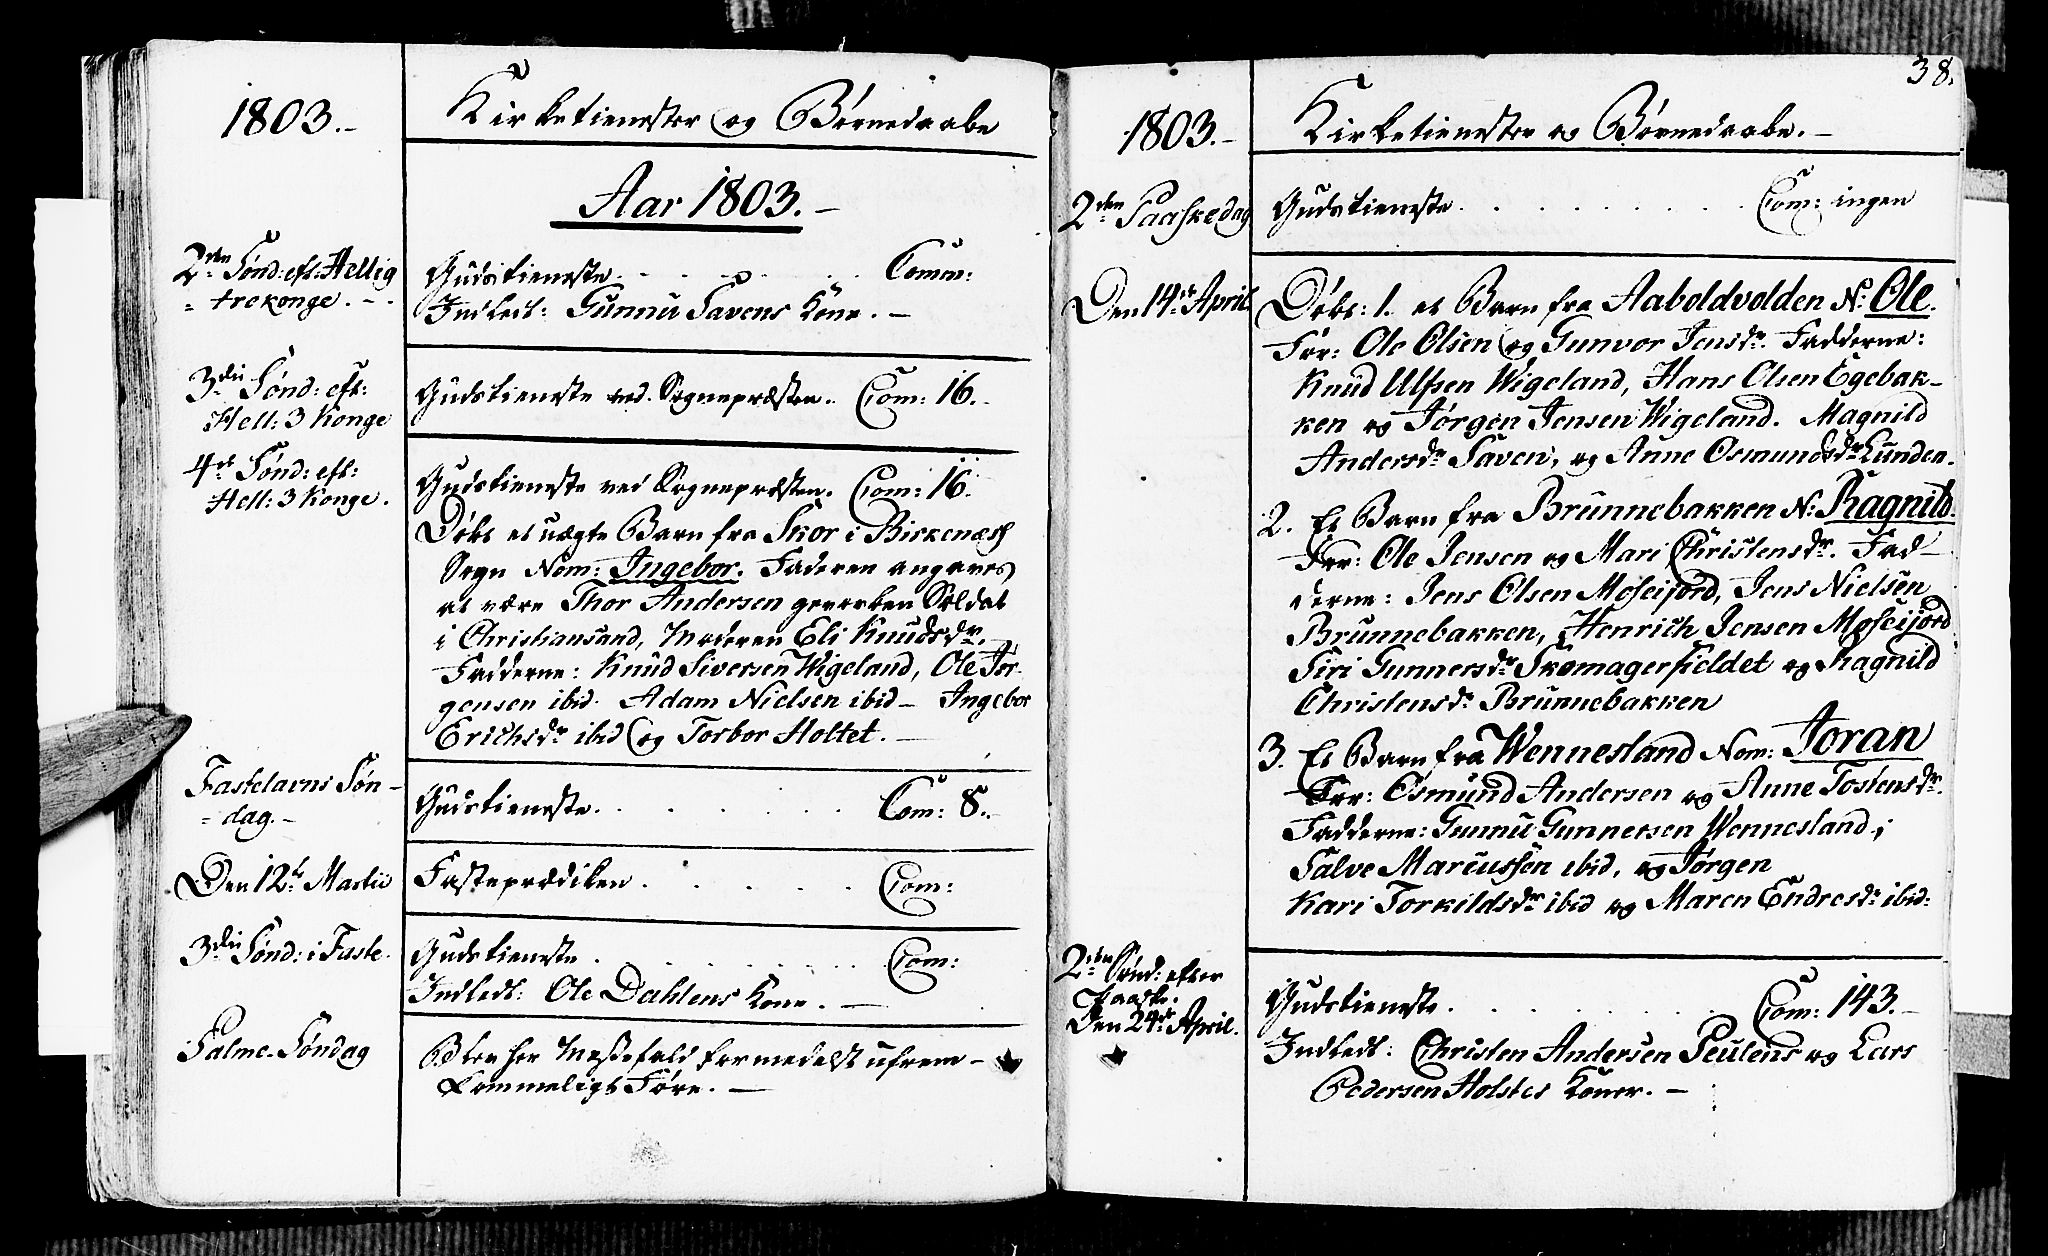 1803.-
Kirketienester og Børnedaabe
Aar 1803.-
2den Sønd: eft. Hellig
= trekonge. - -
Gudstieneste. . . . . . . Comm:
Indledt: Gunnu Savens Kone. -
3die Sønd: eft:
Hell: 3 Konge
Gudstieneste ved Sognepræsten. Com: 16.-
4de Sønd: eft:
Hell: 3 Konge.
Gudstieneste ved Sognepræsten. Com: 16.
Døbt et uægte Barn fra Skor i Birkenæss
Sogn Nom: Ingebor. Faderen angaves
at være Thor Andersen geworben Soldat
i Christiansand, Moderen Eli Knudsdr.-
Fadderne: Knud Siversen Wigeland, Ole Jør-
gensen ibid. Adam Nielsen ibid - Ingebor
Erichsdr ibid og Torbor Holtet. -
Fastelavns Søn-
= dag. -
Gudstieneste. . . . . . . Com: 8.-
Den 12te Martii
Fasteprædiken . . . . . Com:
3die Sønd: i Faste.
Gudstieneste . . . . . . . Com:
Indledt: Ole Dahlens Kone. -
Palme-Søndag
Blev her Messefald formedelst ufrem-
kommeligt Føre. -
38.
1803.-
Kirketienester og Børnedaabe. -
2den Paaskedag
Gudstieneste. . . . . . . . . Com: ingen
Den 14de April
Døbt: 1. et Barn fra Aaboldvolden N: Ole.
For: Ole Olsen og Gunvor Jensdr. Fadderne:
Knud Ulfsen Wigeland, Hans Olsen Egebak-
ken og Jørgen Jensen Wigeland. Magnild
Andersdr Saven, og Anne Osmundsdr Lunden.
2. Et Barn fra Brunnebakken N: Ragnild.
For: Ole Jensen og Mari Christensdr. Fad-
derne: Jens Olsen Moseijord, Jens Nielsen
Brunnebakken, Henrich Jensen Moseijord
Siri Gunnersdr Skomagerfieldet og Ragnild
Christensdr Brunnebakken
3. Et Barn fra Wennesland Nom: Joran
For: Osmund Andersen og Anne Tostensdr.
Fadderne: Gunnu Gunnersen Wennesland,
Salve Marcussen ibid, og Jørgen
Kari Torkildsdr ibid og Maren Endresdr ibid:
2den Sønd: efter
Paaske.
Den 24de April.
Gudstieneste. . . . . . . Com: 143.-
Indledt: Christen Andersen Peulens og Lars
Pedersen Holstes Koner. -